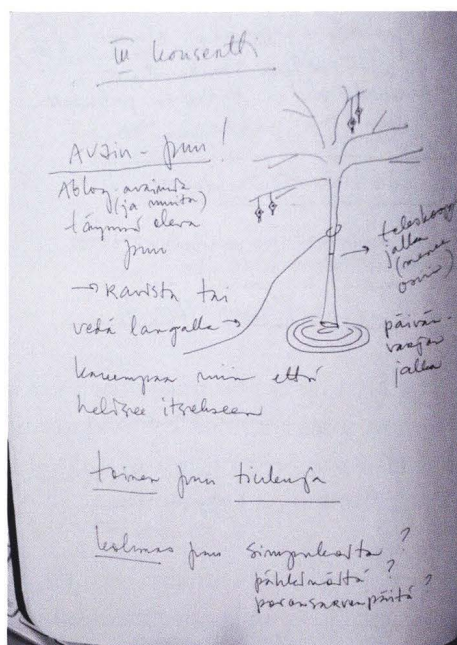 III konsertti
Avain-puu!
Abloy-avaimia
(ja muita)
täynnä oleva
puu
→ Ravista tai
vedä langalla →
kauempaa niin että
helisee itsekseen
→ teleskooppi
jalka
(menee
osiin)
päivän-
varjon
jalka
toinen puu tiukuja
kolmas puu simpukoita?
pähkinöitä?
poronsarvenpäitä?